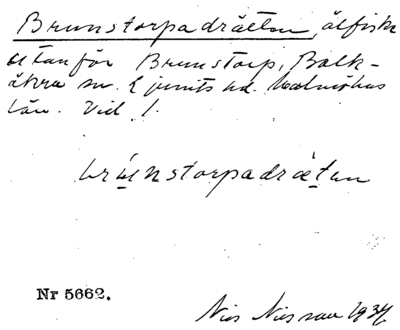 Brunstorpadrätten, ålfiske
utanför Brunstorp, Balk-
åkra sn. Ljunits hd. Malmöhus
län. Vid !.
brúnstorpadrätən
Nr 5662.
Nils Nilsson 1934